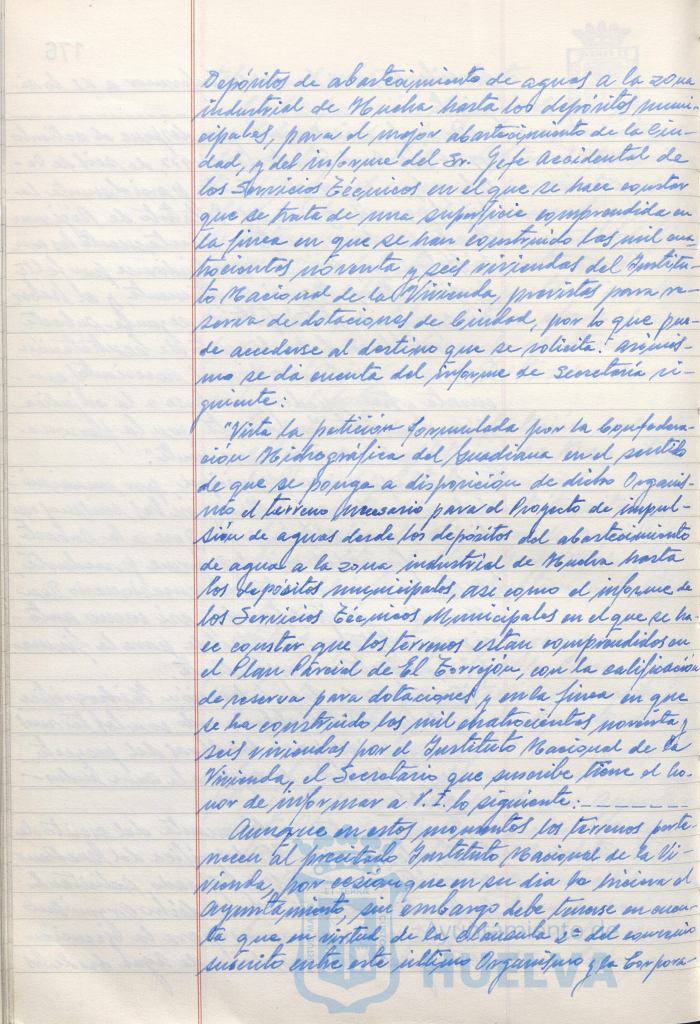 Depósitos de abastecimiento de aguas a la zona
industrial de Huelva hasta los depósitos muni-
cipales, para el mejor abastecimiento de la Ciu-
dad, y del informe del Sr. Jefe Accidental de
los Servicios Técnicos en el que se hace constar
que se trata de una superficie comprendida en
la finca en que se han construido las mil cua-
trocientas noventa y seis viviendas del Institu-
to Nacional de la Vivienda, previstas para re-
serva de dotaciones de Ciudad, por lo que pue-
de accederse al destino que se solicita. Asimis-
mo se dá cuenta del informe de Secretaría si-
guiente:
"Vista la petición formulada por la Confedera-
ción Hidrográfica del Guadiana en el sentido
de que se ponga a disposición de dicho Organis-
mo el terreno necesario para el Proyecto de impul-
sión de aguas desde los depósitos del abastecimiento
de agua a la zona industrial de Huelva hasta
los depósitos municipales, así como el informe de
los Servicios Técnicos Municipales en el que se ha-
ce constar que los terrenos estan comprendidos en
el Plan Parcial de El Torrejón, con la calificación
de reserva para dotaciones y en la finca en que
se ha construido las mil cuatrocientas noventa y
seis viviendas por el Instituto Nacional de la
Vivienda, el Secretario que suscribe tiene el ho-
nor de informar a V. I. lo siguiente:
Aunque en estos momentos los terrenos perte-
necen al precitado Instituto Nacional de la Vi-
vienda, por cesión que en su día le hiciera el
Ayuntamiento, sin embargo debe tenerse en cuen-
ta que en virtud de la Cláusula 2ª del convenio
suscrito entre este último Organismo y la Corpora-
Ayuntamiento de
HUELVA